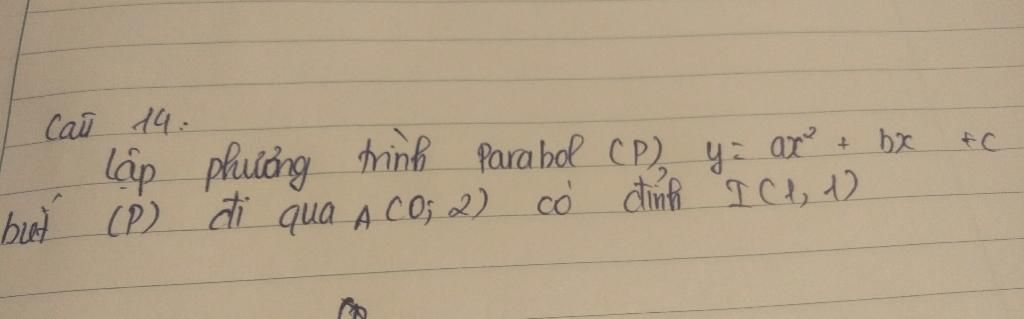 Câu 14:
lập phương trình Parabol (P) y= ax² + bx +c
biết (P) đi qua A(0; 2) có đỉnh I(1, 1)